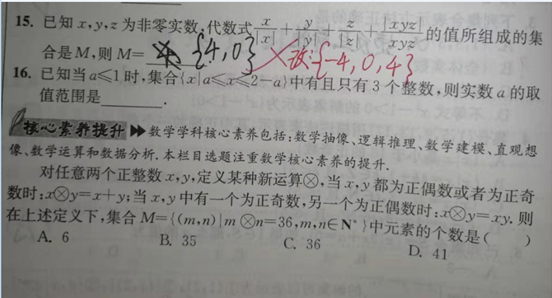 15. 已知 x,y,z 为非零实数,代数式 x/|x| + y/|y| + z/|z| + |xyz|/xyz 的值所组成的集
合是 M,则 M= {4,0} 改:{-4,0,4}
16. 已知当 a≤1 时,集合{x|a≤x≤2-a}中有且只有 3 个整数,则实数 a 的取
值范围是______.
核心素养提升 ▶▶ 数学学科核心素养包括:数学抽像、逻辑推理、数学建模、直观想
像、数学运算和数据分析.本栏目选题注重数学核心素养的提升.
对任意两个正整数 x,y,定义某种新运算⊗,当 x,y 都为正偶数或者为正奇
数时:x⊗y=x+y;当 x,y 中有一个为正奇数,另一个为正偶数时:x⊗y=xy. 则
在上述定义下,集合 M={(m,n)|m⊗n=36,m,n∈N*}中元素的个数是( )
A. 6 B. 35 C. 36 D. 41